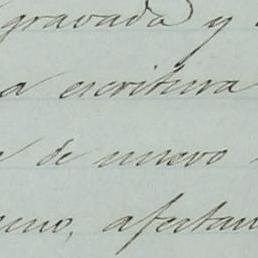 gravada y
a escritura
de nuevo
eno, afectan